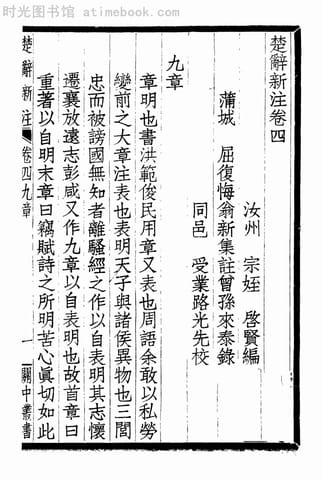 时光图书馆 www.atimebook.com
楚辭新注卷四
汝州 宗姪 啓賢編
蒲城 屈復悔翁新集註曾孫來泰錄
同邑 受業路光先校
九章
章明也書洪範俊民用章又表也周語余敢以私勞
變前之大章注表也表明天子與諸侯異物也三閭
忠而被謗國無知者離騷經之作以自表明其志懷
遷襄放遠志彭咸又作九章以自表明也故首章曰
重著以自明末章曰竊賦詩之所明苦心眞切如此
楚辭新注 卷四九章 一 關中叢書